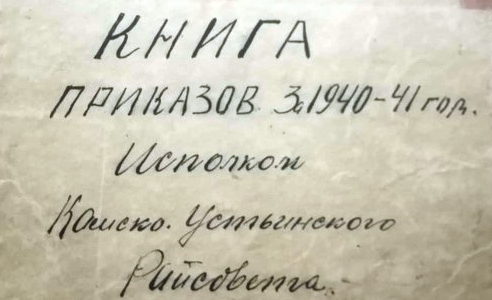 КНИГА
ПРИКАЗОВ За 1940-41 год.
Исполком
Камско. Устьинского
Райсовета.